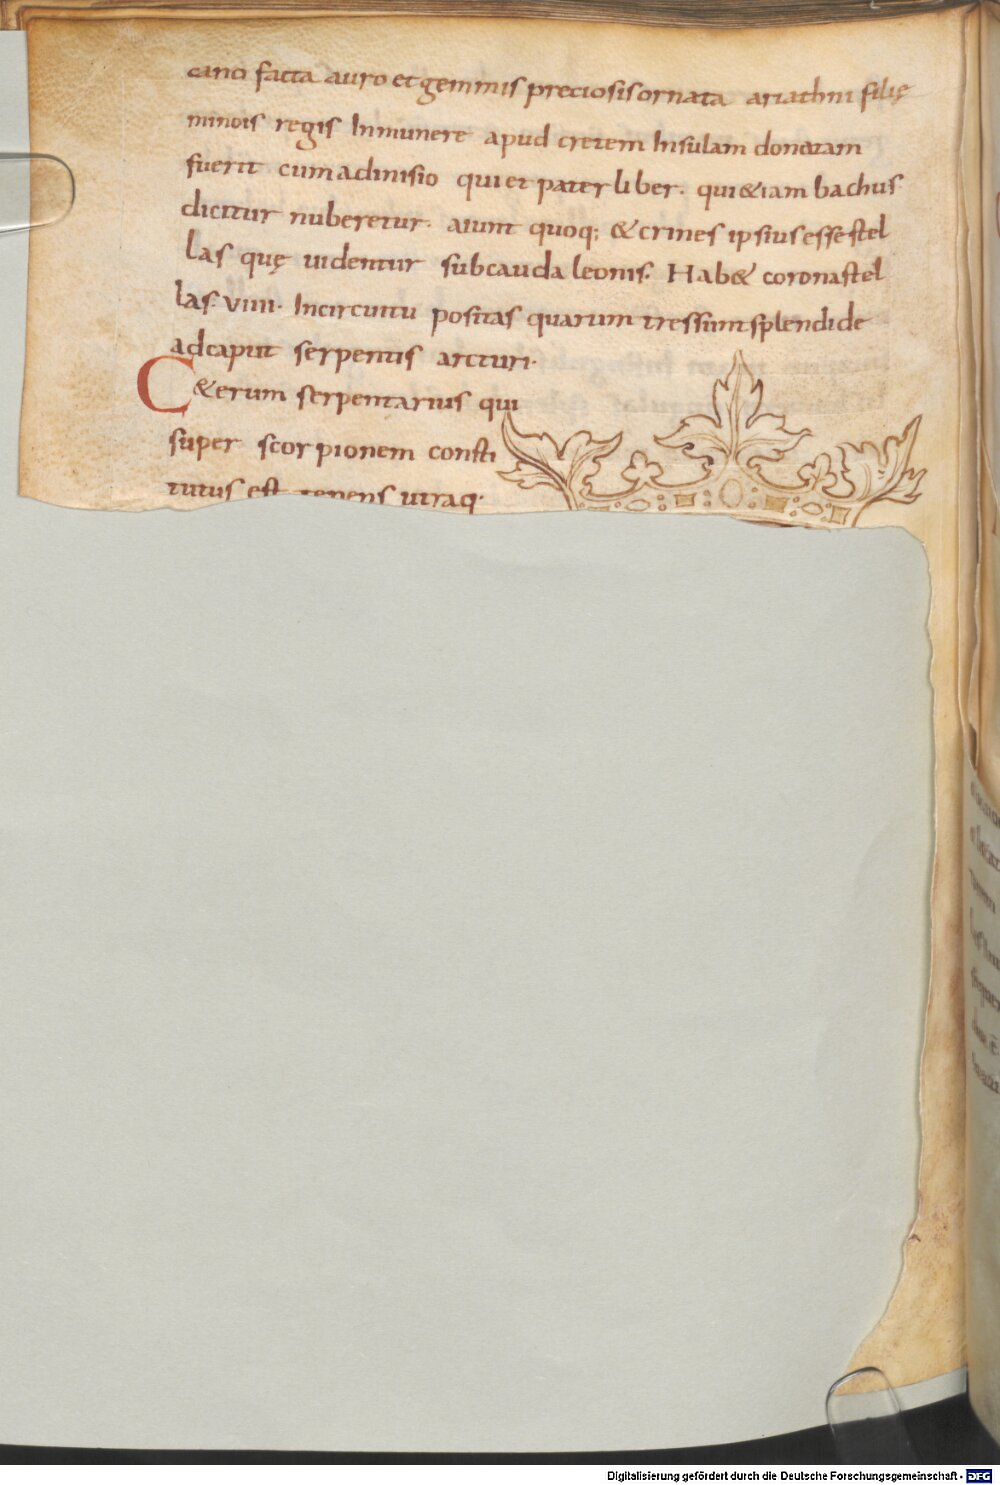 cano facta auro et gemmis preciosis ornata ariathni filię
minois regis In munere apud cretem Insulam donatam
fuerit cum adinisio qui et pater liber. qui &iam bachus
dicitur nuberetur. aiunt quoq; & crines ipsius esse stel
las quę uidentur sub cauda leonis. Hab& corona stel
las. viiii. In circuitu positas quarum tres sunt splendide
ad caput serpentis arcturi.
C&erum serpentarius qui
super scorpionem consti
tutus est tenens utraq.
Digitalisierung gefördert durch die Deutsche Forschungsgemeinschaft - DFG